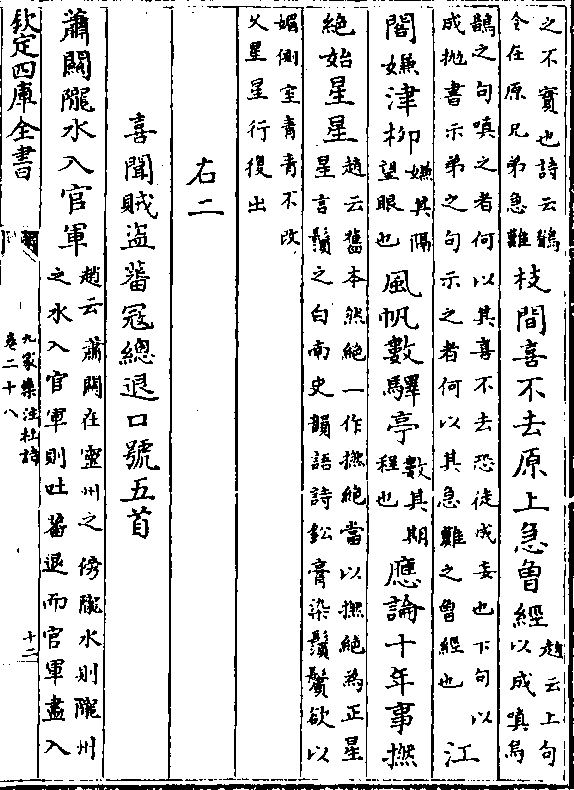 之不實也詩云鶺
令在原兄弟急難
枝間喜不去原上急曾經
趙云上句
以成嗔烏
鵲之句嗔之者何以其喜不去恐徒成妄也下句以
成抛書示弟之句示之者何以其急難之曾經也
江
閣嫌津柳
嫌其隔
望眼也
風帆數驛亭
數其期
程也
應論十年事撚
絶始星星
趙云舊本然絶一作撚絶當以撚絶為正星
星言鬚之白南史韻語詩鈆膏染鬚鬢欲以
媚側室青青不改
乆星星行復出
右二
喜聞賊盗蕃冦總退口號五首
蕭關隴水入官軍
趙云蕭關在靈州之傍隴水則隴州
之水入官軍則吐蕃退而官軍盡入
欽定四庫全書
九家集注杜詩
卷二十八
十二